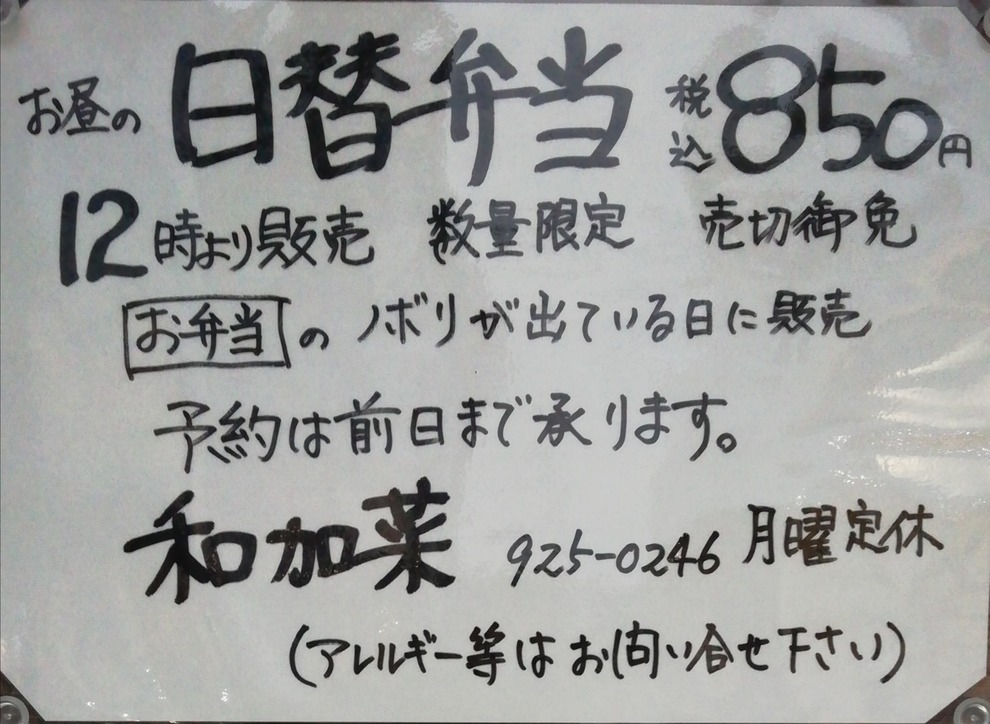 お昼の 日替弁当 税込850円
12時より販売 数量限定 売切御免
お弁当 の ノボリが出ている日に販売
予約は前日まで承ります。
和加菜 925-0246 月曜定休
(アレルギー等はお問い合せ下さい)